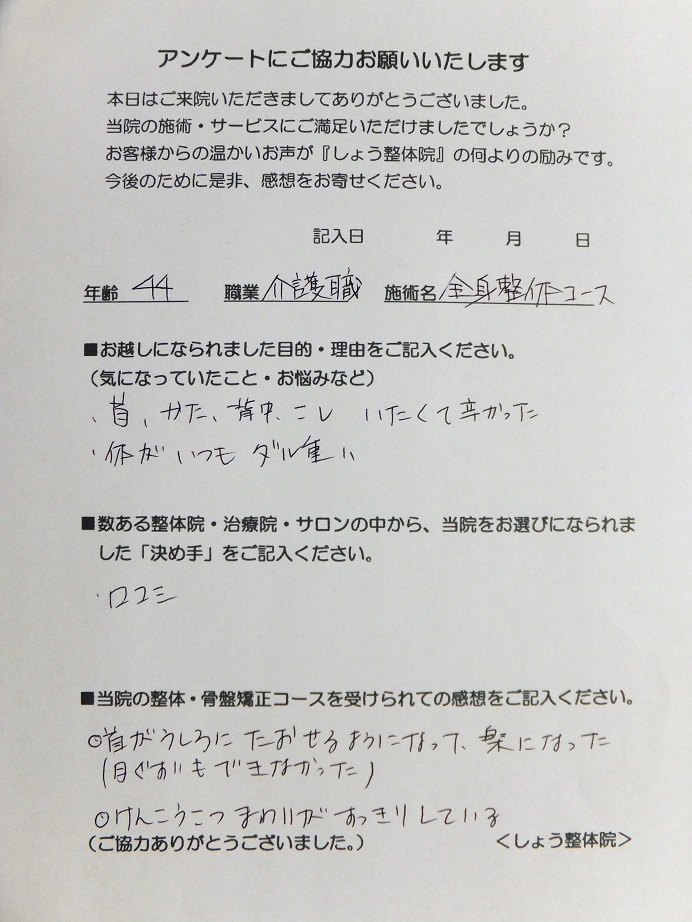 アンケートにご協力お願いいたします
本日はご来院いただきましてありがとうございました。
当院の施術・サービスにご満足いただけましたでしょうか？
お客様からの温かいお声が『しょう整体院』の何よりの励みです。
今後のために是非、感想をお寄せください。
記入日 年 月 日
年齢 44 職業 介護職 施術名 全身整体コース
■お越しになられました目的・理由をご記入ください。
（気になっていたこと・お悩みなど）
・首、かた、背中、こし いたくて辛かった
・体がいつも ダル重い
■数ある整体院・治療院・サロンの中から、当院をお選びになられま
した「決め手」をご記入ください。
・口コミ
■当院の整体・骨盤矯正コースを受けられての感想をご記入ください。
◎首がうしろに たおせるようになって、楽になった
もできなかった)
◎けんこうこつ まわりが すっきりしている
（ご協力ありがとうございました。） ＜しょう整体院＞